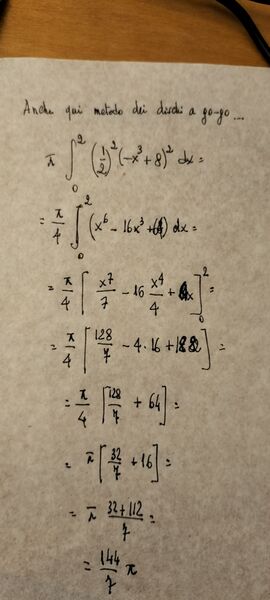 Anche qui metodo dei dischi a go-go ...
π ∫₀² (1/2)² (-x³ + 8)² dx =
= π/4 ∫₀² (x⁶ - 16x³ + 64) dx =
= π/4 [x⁷/7 - 16 x⁴/4 + 64x]₀² =
= π/4 [128/7 - 4·16 + 128] =
= π/4 [128/7 + 64] =
= π [32/7 + 16] =
= π (32+112)/7 =
= 144/7 π